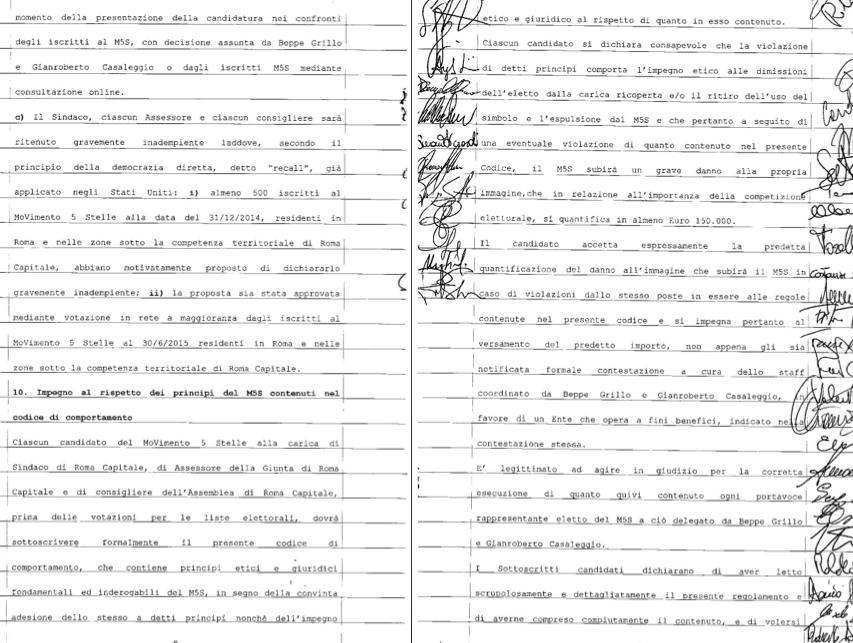 momento della presentazione della candidatura nei confronti
degli iscritti al M5S, con decisione assunta da Beppe Grillo
e Gianroberto Casaleggio o dagli iscritti M5S mediante
consultazione online.
c) Il Sindaco, ciascun Assessore e ciascun consigliere sarà
ritenuto gravemente inadempiente laddove, secondo il
principio della democrazia diretta, detto "recall", già
applicato negli Stati Uniti: i) almeno 500 iscritti al
MoVimento 5 Stelle alla data del 31/12/2014, residenti in
Roma e nelle zone sotto la competenza territoriale di Roma
Capitale, abbiano motivatamente proposto di dichiararlo
gravemente inadempiente; ii) la proposta sia stata approvata
mediante votazione in rete a maggioranza dagli iscritti al
MoVimento 5 Stelle al 30/6/2015 residenti in Roma e nelle
zone sotto la competenza territoriale di Roma Capitale.
10. Impegno al rispetto dei principi del M5S contenuti nel
codice di comportamento
Ciascun candidato del MoVimento 5 Stelle alla carica di
Sindaco di Roma Capitale, di Assessore della Giunta di Roma
Capitale e di consigliere dell'Assemblea di Roma Capitale,
prima delle votazioni per le liste elettorali, dovrà
sottoscrivere formalmente il presente codice di
comportamento, che contiene principi etici e giuridici
fondamentali ed inderogabili del M5S, in segno della convinta
adesione dello stesso a detti principi nonchè dell'impegno
etico e giuridico al rispetto di quanto in esso contenuto.
Ciascun candidato si dichiara consapevole che la violazione
di detti principi comporta l'impegno etico alle dimissioni
dell'eletto dalla carica ricoperta e/o il ritiro dell'uso del
simbolo e l'espulsione dal M5S e che pertanto a seguito di
una eventuale violazione di quanto contenuto nel presente
Codice, il M5S subirà un grave danno alla propria
immagine,che in relazione all'importanza della competizione
elettorale, si quantifica in almeno Euro 150.000.
Il candidato accetta espressamente la predetta
quantificazione del danno all'immagine che subirà il M5S in
caso di violazioni dallo stesso poste in essere alle regole
contenute nel presente codice e si impegna pertanto al
versamento del predetto importo, non appena gli sia
notificata formale contestazione a cura dello staff
coordinato da Beppe Grillo e Gianroberto Casaleggio, in
favore di un Ente che opera a fini benefici, indicato nella
contestazione stessa.
E' legittimato ad agire in giudizio per la corretta
esecuzione di quanto quivi contenuto ogni portavoce
rappresentante eletto del M5S a ciò delegato da Beppe Grillo
e Gianroberto Casaleggio.
I Sottoscritti candidati dichiarano di aver letto
scrupolosamente e dettagliatamente il presente regolamento e
di averne compreso compiutamente il contenuto, e di volersi